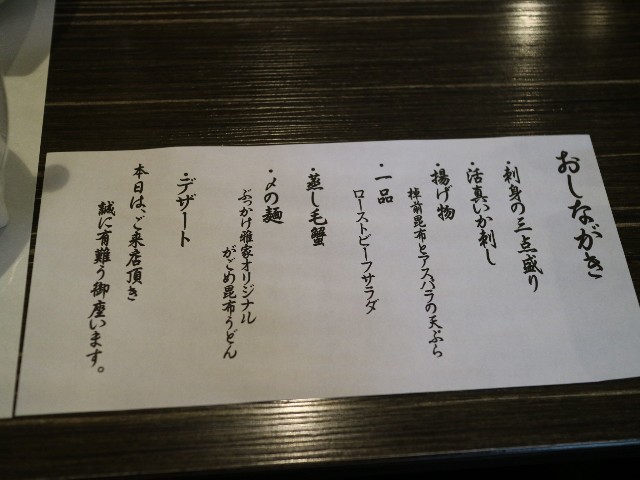 おしながき
・刺身の三点盛り
・活真いか刺し
・揚げ物
棹前昆布とアスパラの天ぷら
・一品
ローストビーフサラダ
・蒸し毛蟹
・〆の麺
ぶっかけ雅家オリジナル
がごめ昆布うどん
・デザート
本日は、ご来店頂き
誠に有難う御座います。